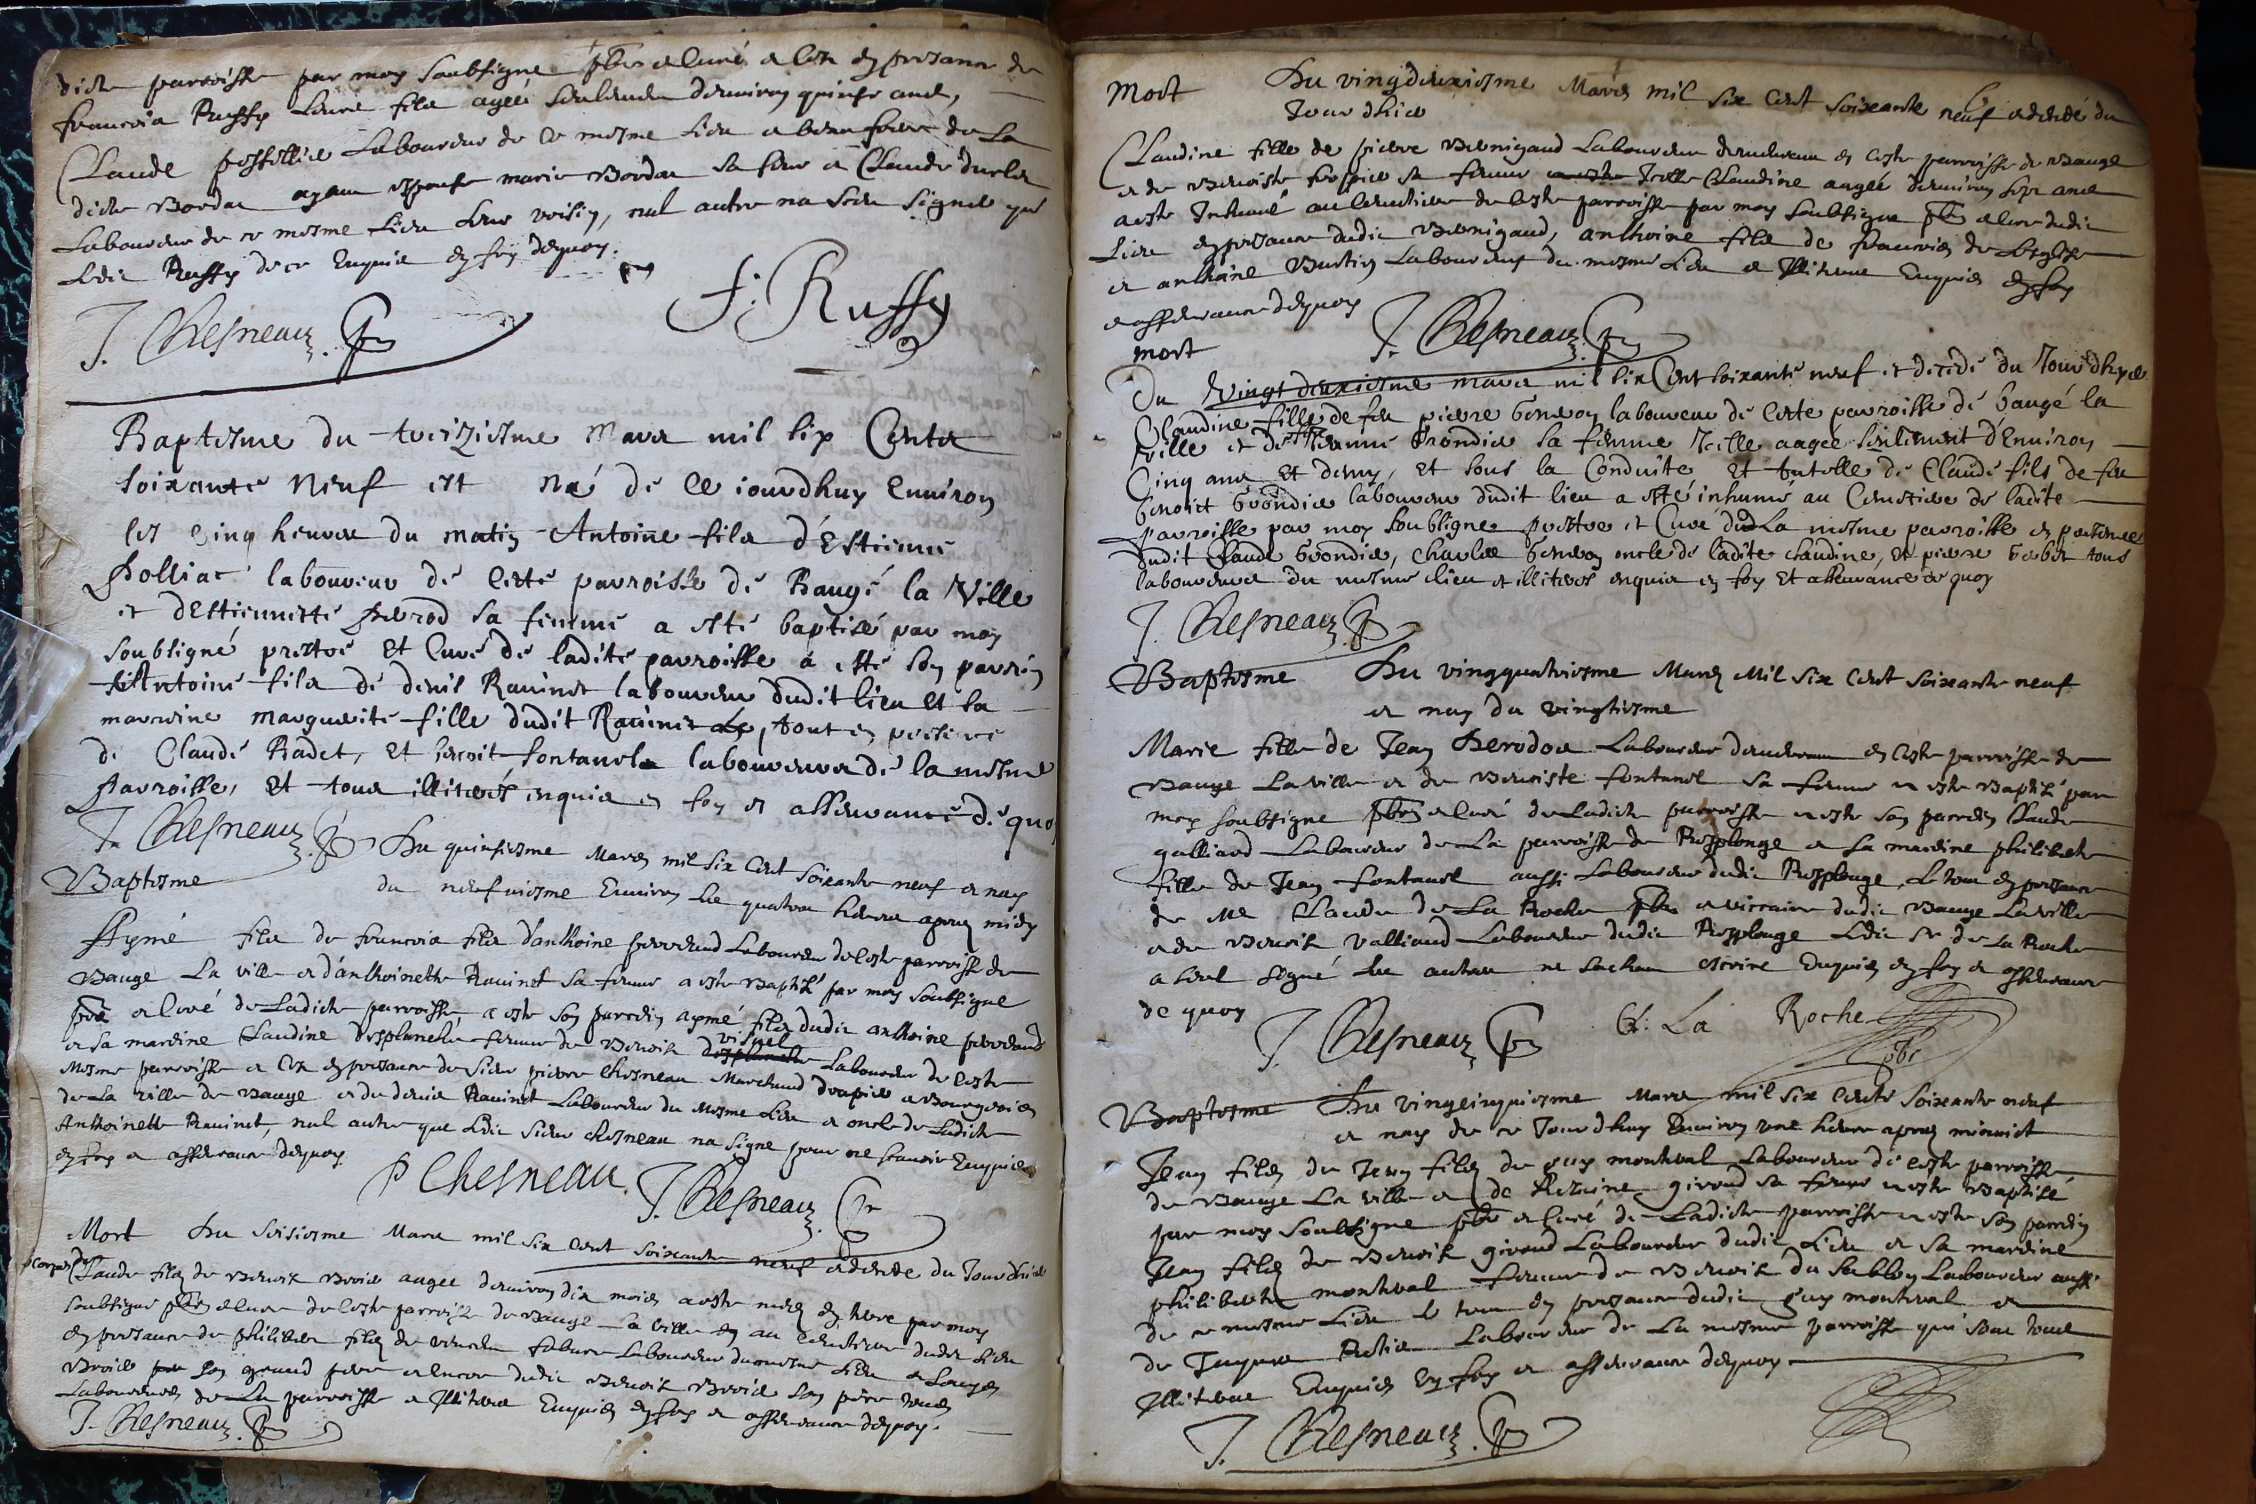 dicte parroisse par moy soubsigne pbre et curé et ce en presance de
francois Russy Laine fils agee seulement denviron quinse ans,
Claude Laboureur de ce mesme Lieu et beau frere de La
dicte Bordat ayant espousé marie Bordat sa sœur et Claude
Laboureur de ce mesme Lieu leur voisin, nul autre na sceu signer que
Ledic Russy de ce Enquis en foy dequoy.
J. Chesneau pbre
f. Russy
Baptesme du treiziesme Mars mil six Cents
soixante Neuf est né de ce iourdhuy Environ
les cinq heures du matin Antoine fils d'Estienne
Polliac laboureur de ceste parroisse de Baugé la Ville
et dEstiennette Perrod sa femme a esté baptisé par moy
soubsigné prestre Et Curé de ladite parroisse a esté son parrin
Antoine fils de denis Ravinet laboureur dudit lieu Et sa
marrine marguerite fille dudit Ravinet, tout en presence
de Claude Radet, Et benoit fontanel laboureurs de la mesme
Parroisse, Et tous illiterés enquis en foy et asseurance de quoy
J. Chesneau pbre
Baptesme Du quinsiesme Mars mil six Cent soixante neuf et nay
du neufviesme Environ Les quatre heures apres midy
Aymé fils de francois fils danthoine perrodaud Laboureur de ceste parroisse de
Bauge La ville et danthoinette Ravinet sa femme a este Baptisé par moy soubsigne
pbre et Curé de Ladicte parroisse a este son parrin aymé fils dudic anthoine
et sa marrine Claudine desplanche femme de Benoist vismel Laboureur de ceste
Mesme parroisse et ce en presance de sieur pierre Chesneau Marchand drapier et Bourgeois
de La ville de Bauge et de denis Ravinet Laboureur du Mesme Lieu et oncle de Ladicte
Anthoinette Ravinet, nul autre que Ledic sieur Chesneau na signe pour ne scavoir Enquis
en foy et asseurance dequoy
P Chesneau. J. Chesneau pbre
Mort Du seisiesme Mars mil six Cent soixante neuf et decede du Jourdhuie
Claude fils de Benoist Broie aagee denviron dix mois a este mis en terre par moy
soubsigne pbre et cure de ceste parroisse de Bauge La ville en au Cemetiere dudit Lieu
en presance de philibert fils de Laboureur du mesme Lieu et
Broie son grand pere et encore dudic Benoist Broie son pere tous
Laboureurs de La parroisse et Illiteres Enquis en foy et asseurance dequoy.
J. Chesneau pbre
Mort Du vingdeuxiesme Mars mil six Cent soixante neuf et decedé du
Jourdhuie
Claudine fille de pierre Benigaud Laboureur demeurant en ceste parroisse de Bauge
et de Benoiste sa femme Icelle Claudine aagée denviron six ans
a este Inhumé au Cemetiere de ceste parroisse par moy soubsigne pbre et cure dudic
Lieu en presance dudic Benigaud, anthoine fils de francois de
et anthoine Laboureurs du mesme Lieu et Illiteres Enquis en foy
et asseurance dequoy
J. Chesneau pbre
mort
Du Vingt deuxiesme mars mil six Cent soixante neuf et decedé du Jourdhyer
Claudine fille de feu pierre laboureur de ceste parroisse de baugé la
ville et de Brondie sa femme Icelle aagée seulement dEnviron
Cinq ans Et demy, Et sous la Conduite Et tutelle de Claude fils de feu
benoict Brondie laboureur dudit lieu a esté inhumé au Cemetiere de ladite
parroisse par moy soubsigne prestre et Curé de La mesme parroisse en presence
dudit Claude Brondie, Charles oncle de ladite Claudine, et pierre tous
laboureurs du mesme lieu et illiteres enquis en foy Et asseurance de quoy
J. Chesneau pbre
Baptesme Du vingquatriesme Mars Mil six Cent soixante neuf
et nay du vingtiesme
Marie fille de Jean Laboureur demeurant en ceste parroisse de
Bauge La ville et de Benoiste fontanel sa femme a este Baptisé par
moy soubsigne pbre et curé de Ladicte parroisse a este son parrin Claude
galliard Laboureur de La parroisse de Repplonge et sa marrine philiberte
fille de Jean fontanel aussi Laboureur dudic Repplonge, Le tout en presance
de Mre Claude de La Roche pbre et viccaire dudic Bauge La ville
et de Benoist valliaud Laboureur dudic Repplonge Ledic sr de La Roche
a seul signé les autres ne sachant escrire Enquis en foy et asseurance
de quoy
J. Chesneau pbre Cl. La Roche pbr
Baptesme Du vingcinquiesme Mars mil six Cents soixante neuf
et nay de ce Jourdhuy Environ une heure apres minuict
Jean fils de Jean fils de guy montval Laboureur de ceste parroisse
de Bauge La ville et de giroud sa femme a este Baptisé
par moy soubsigne pbre et curé de Ladicte parroisse a este son parrin
Jean fils de Benoist giroud Laboureur dudic Lieu et sa marrine
philiberte montval femme de Benoist du sabbon Laboureur aussi
de ce mesme Lieu Le tout en presance dudic guy montval et
de Jaques Laboureur de La mesme parroisse qui sont tous
Illiteres Enquis en foy et asseurance dequoy
J. Chesneau pbre